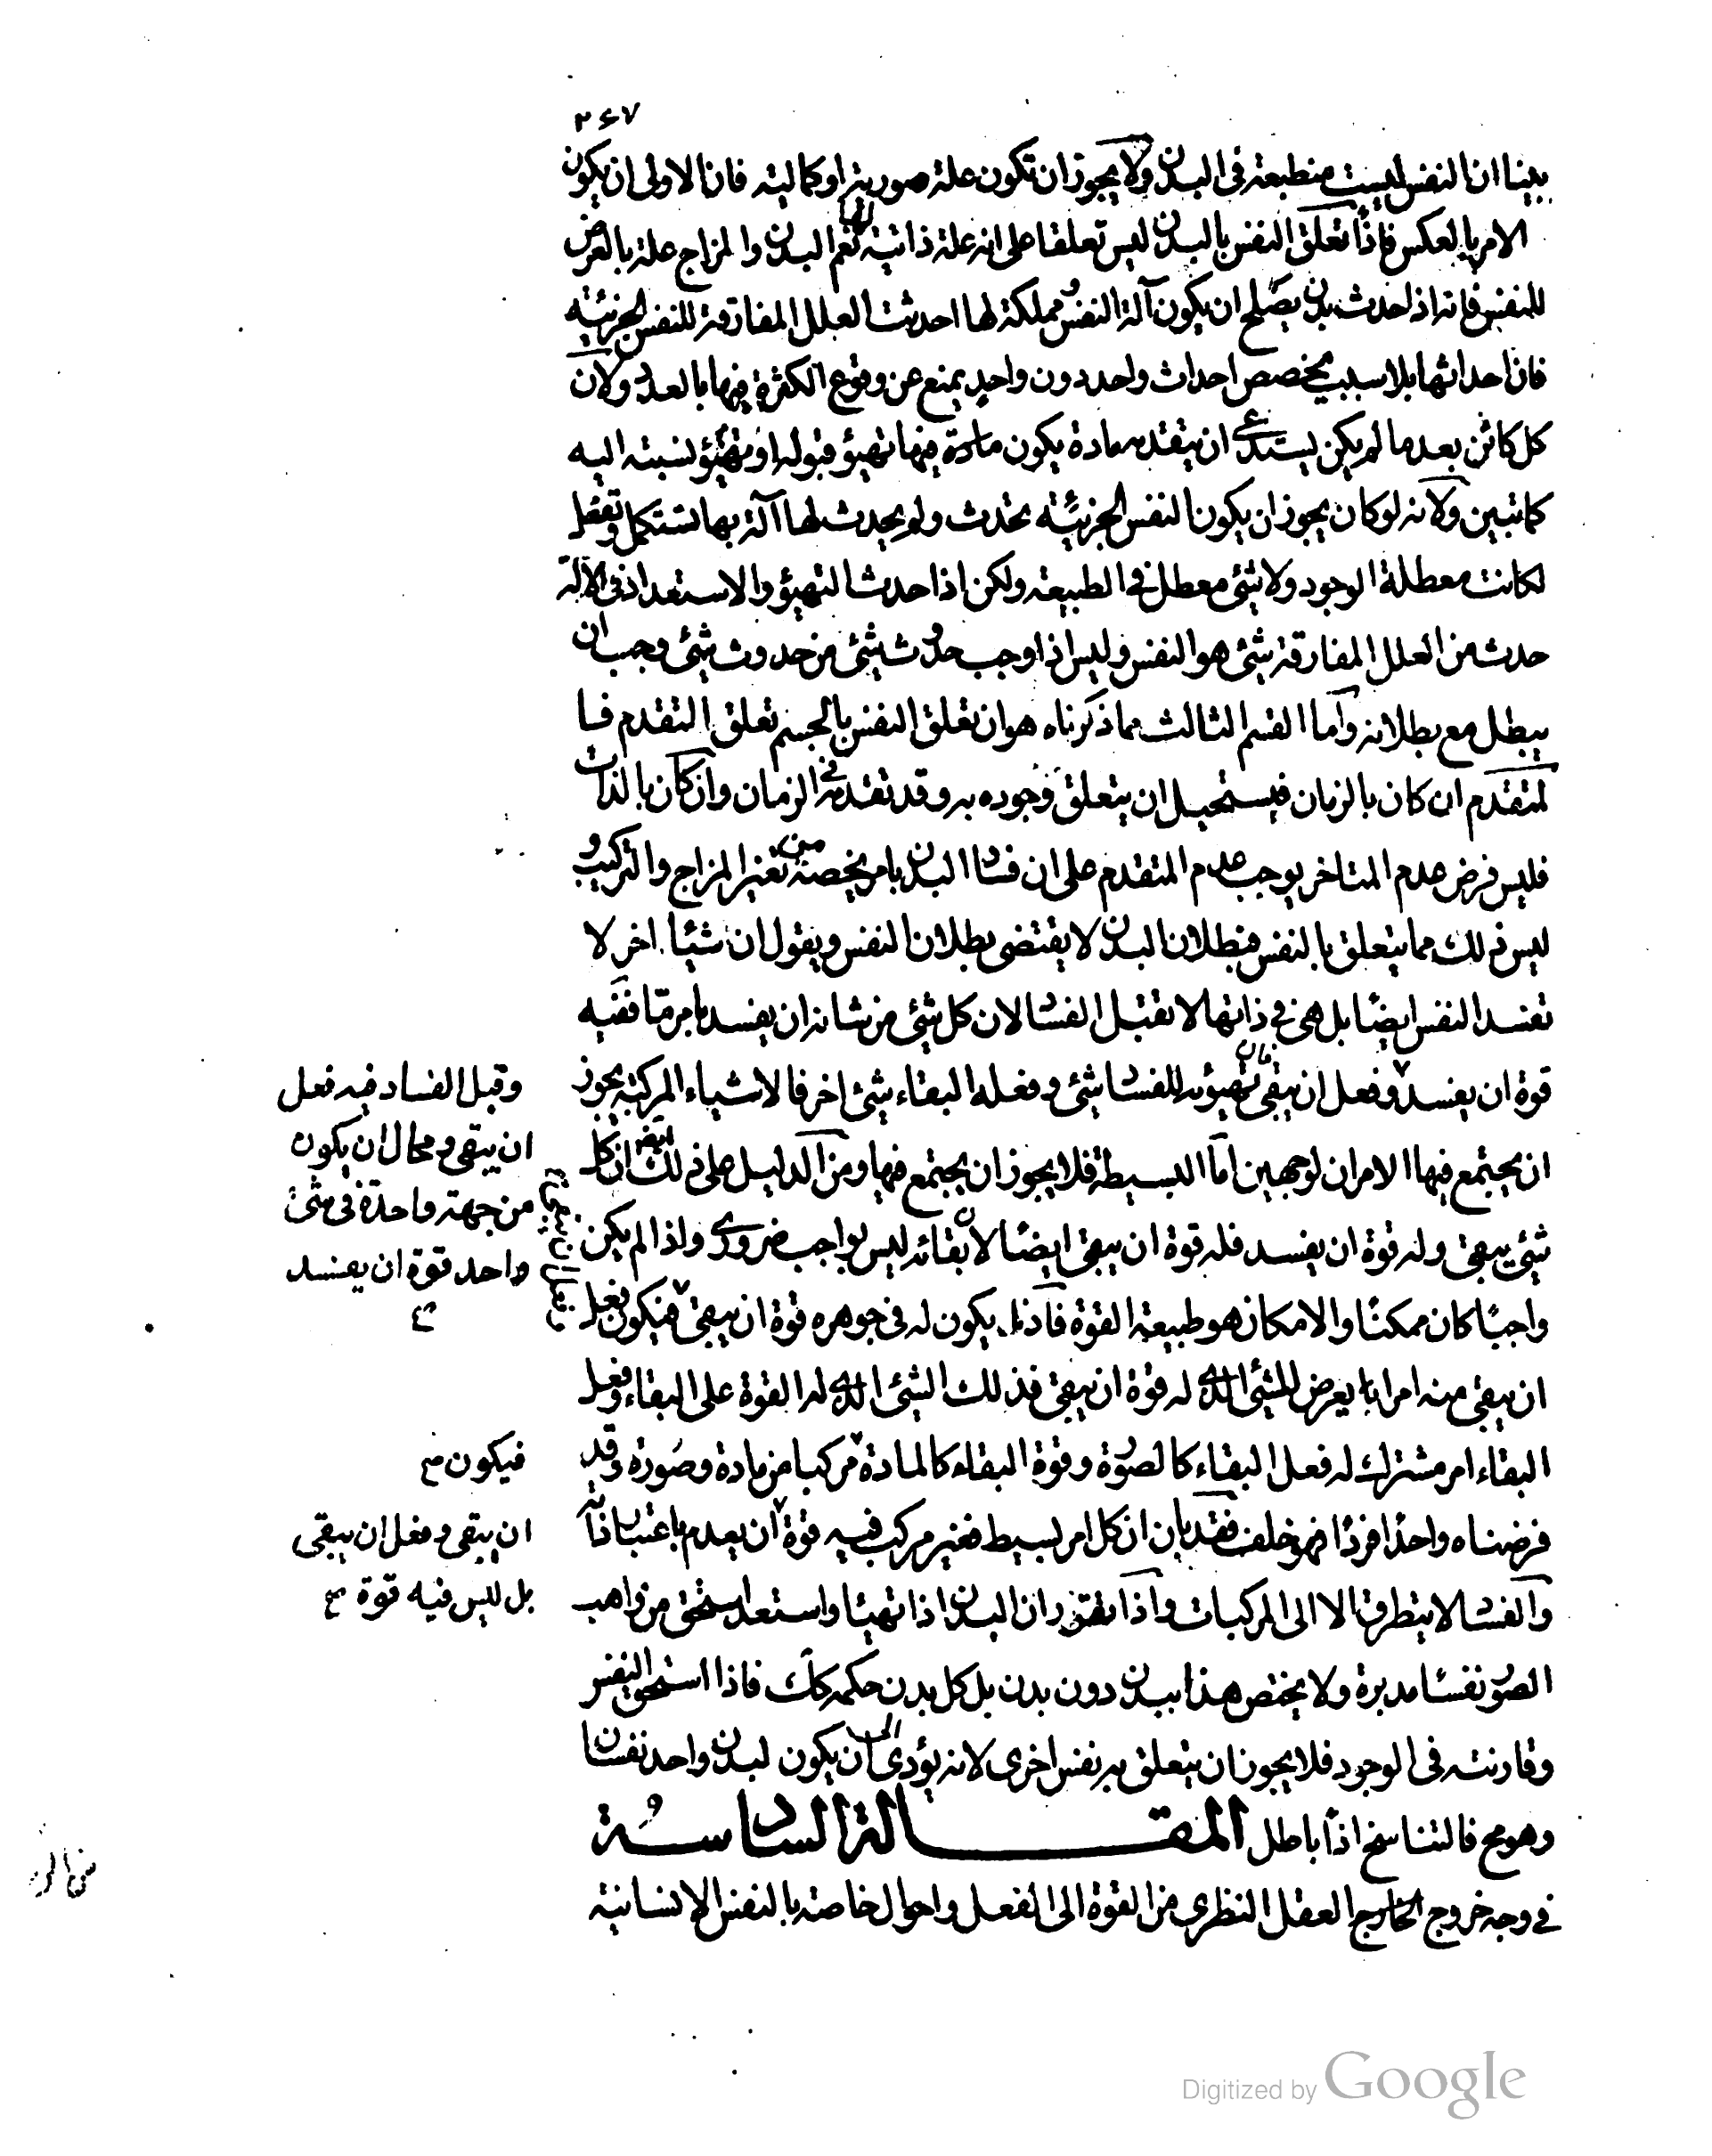 ٢٤٧
بينا ان النفس ليست منطبعة في البدن ولا يجوز ان تكون علة صورية او كمالية فان الاولى ان يكون
الامر بالعكس فاذا تعلق النفس بالبدن ليس تعلقا على انه علة ذاتية لها نعم البدن والمزاج علة بالعرض
للنفس فانه اذا حدث بدن يصلح ان يكون آلة النفس ومملكة لها احدثت العلل المفارقة للنفس الجزئية
فان احداثها بلا سبب يخصص احداث واحد دون واحد يمنع عن وقوع الكثرة فيها بالعدد ولان
كل كائن بعد ما لم يكن يستدعي ان يتقدمه مادة يكون مادة فيها تهيؤ قبوله او تهيؤ نسبته اليه
كما تبين ولانه لو كان يجوز ان يكون النفس الجزئية تحدث ولم يحدث لها آلة بها تستكمل وتفعل
لكانت معطلة الوجود ولا شئ معطل في الطبيعة ولكن اذا حدث التهيؤ والاستعداد في الآلة
حدث من العلل المفارقة شئ هو النفس وليس اذا وجب حدوث شئ من حدوث شئ وجب ان
يبطل مع بطلانه واما القسم الثالث مما ذكرناه هو ان تعلق النفس بالجسم تعلق التقدم فا
لمتقدم ان كان بالزمان فيستحيل ان يتعلق وجوده به وقد تقدمه في الزمان وان كان بالذات
فليس فرض عدم المتاخر يوجب عدم المتقدم على ان فساد البدن بامر يخصه من تغير المزاج والتركيب و
ليس ذلك مما يتعلق بالنفس فبطلان البدن لا يقتضى بطلان النفس ويقول ان شيئا اخر لا
تفسد النفس ايضا بل هي في ذاتها لا تقبل الفساد لان كل شئ من شانه ان يفسد بامر ما ففيه
قوة ان يفسد وفعل ان يبقى فان تهيؤه للفساد شئ وفعله البقاء شئ اخر فالاشياء المركبة يجوز
وقبل الفساد فيه فعل
ان يبقى ومحال ان يكون
من جهة واحدة في شئ
واحد قوة ان يفسد
ان يجتمع فيها الامران لوجهين اما البسيطة فلا يجوز ان يجتمع فيها ومن الدليل على ذلك ايضا ان كل
شئ يبقى وله قوة ان يفسد فله قوة ان يبقى ايضا لان بقائه ليس بواجب ضرورى واذا لم يكن
واجبا كان ممكنا والامكان هو طبيعة القوة فاذا يكون له في جوهره قوة ان يبقى فيكون فعل
ان يبقى منه امرا يعرض للشئ الذى له قوة ان يبقى فذلك الشئ الذى له القوة على البقاء وفعل
البقاء امر مشترك له فعل البقاء كالصورة وقوة البقاء كالمادة مركبا من مادة وصورة وقد
فيكون
فرضناه واحدا فردا فهو خلف فقد بان ان كل امر بسيط فغير مركب فيه قوة ان يعدم باعتبار ذاته
ان يبقى وفعل ان يبقى
بل ليس فيه قوة
والفساد لا يتطرق الا الى المركبات واذا تقرر ان البدن اذا تهيئا واستعد استحق من واهب
الصور نفسا مدبرة ولا يختص هذا ببدن دون بدن بل كل بدن حكمه كك فاذا استحق النفس
وقارنته في الوجود فلا يجوز ان يتعلق به نفس اخرى لانه يؤدى الى ان يكون لبدن واحد نفسان
وهو مح فالتناسخ اذا باطل المقالة السادسة
في وجه خروج العقل النظرى من القوة الى الفعل واحوال خاصة بالنفس الانسانية
Digitized by Google